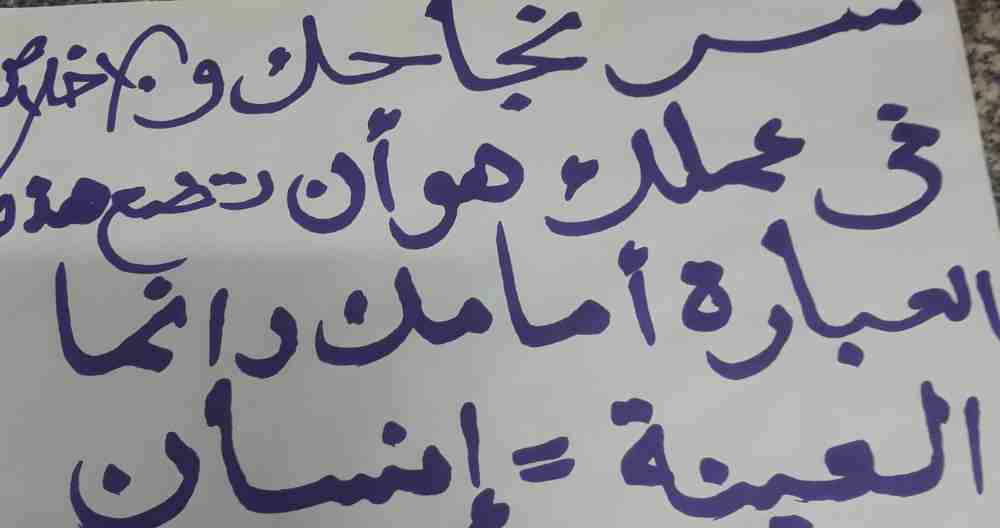 سر نجاحك و إخلاص
في عملك هو أن تضع هذه
العبارة أمامك دائما
العينة = إنسان